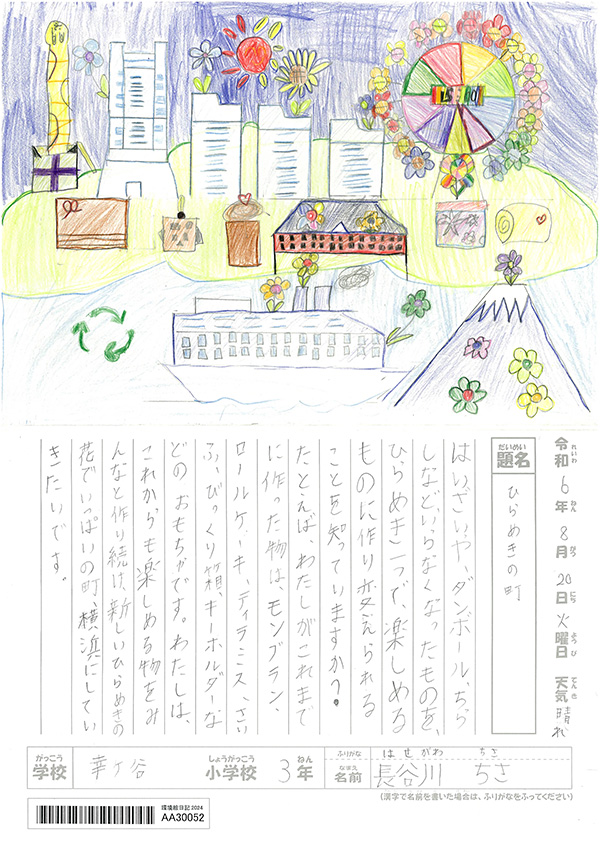 令和6年8月20日火曜日 天気晴れ
れいわ ねん がつ にち ようび てんき
だいめい
題名
ひらめきの町
はいざいや、ダンボール、ちら
しなど、いらなくなったものを、
ひらめき一つで、楽しめる
ものに作り変えられる
ことを知っていますか？
たとえば、わたしがこれまで
に作った物は、モンブラン、
ロールケーキ、ティラミス、さい
ふ、びっくり箱、キーホルダーな
どのおもちゃです。わたしは、
これからも楽しめる物をみ
んなと作り続け、新しいひらめきの
花でいっぱいの町、横浜にしてい
きたいです。
がっこう しょうがっこう ねん ふりがな はせがわ ちさ
学校 幸ヶ谷 小学校 3年 なまえ 名前 長谷川 ちさ
(漢字で名前を書いた場合は、ふりがなをふってください)
環境絵日記2024
AA30052